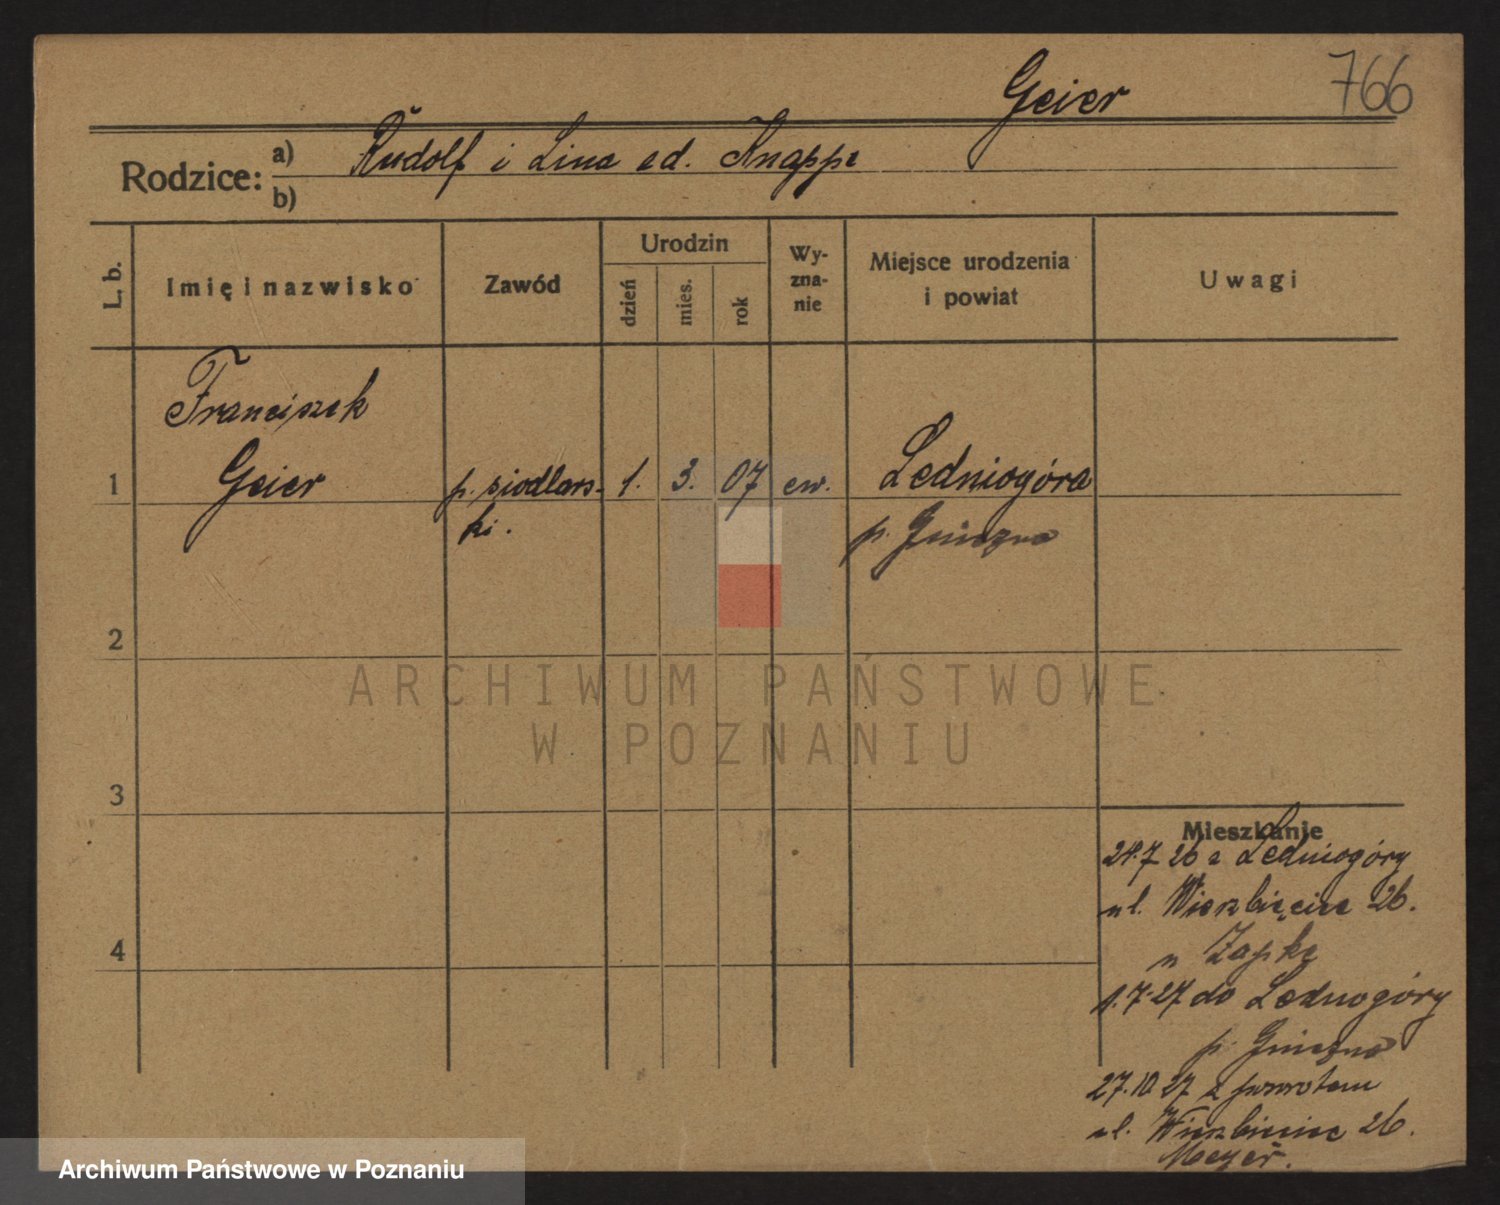 Geier 766
Rodzice: a) Rudolf i Lina ed. Knappe
b)
L. b.
Imię i nazwisko
Zawód
Urodzin
dzień
mies.
rok
Wy-
zna-
nie
Miejsce urodzenia
i powiat
Uwagi
Franciszek
1 Geier p. siodlars- 1. 3. 07 ew. Ledniogóra
ki. p. Gniezno
2
ARCHIWUM PAŃSTWOWE
W POZNANIU
3
Mieszkanie
24.7 26 z Ledniogóry
ul. Wierzbięcice 26.
4
1.7.27 do Lednogóry
p. Gniezno
27.10 27 z powrotem
ul. Wierzbięcice 26.
Meyer.
Archiwum Państwowe w Poznaniu